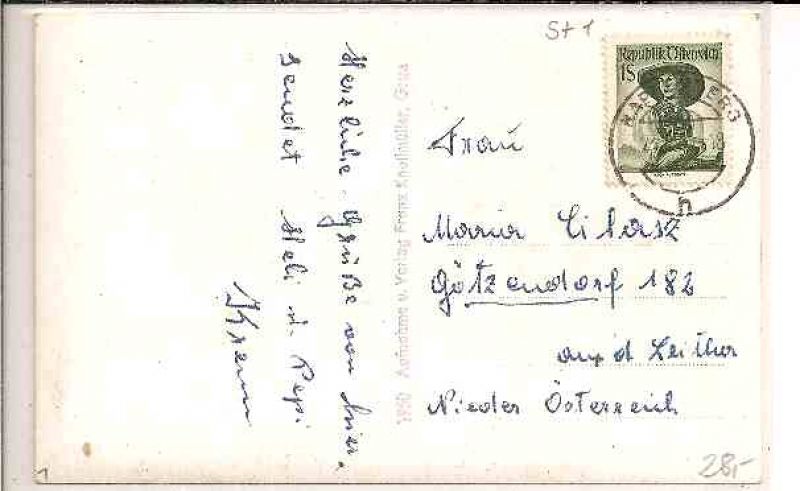 St 1
Republik Österreich
1S
h
Herzliche Grüße von hier.
sendet Heli u. Pepi
Krenn
Aufnahme u. Verlag Franz Knollmüller, Graz
Frau
Maria
Götzendorf 182
an d Leitha
Nieder Österreich
28,-
1